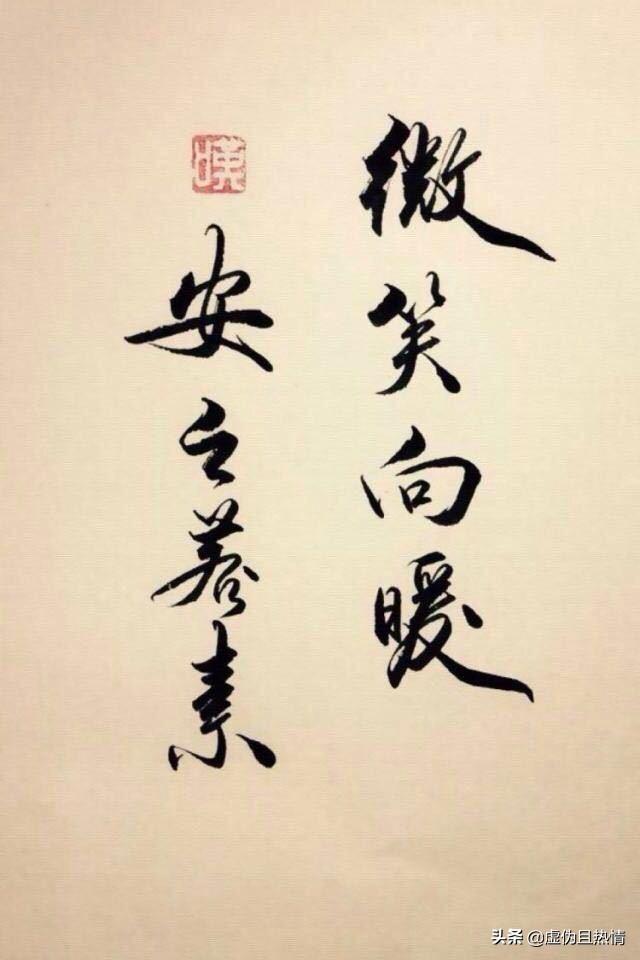 微笑向暖
安之若素
头条 @虚伪且热情